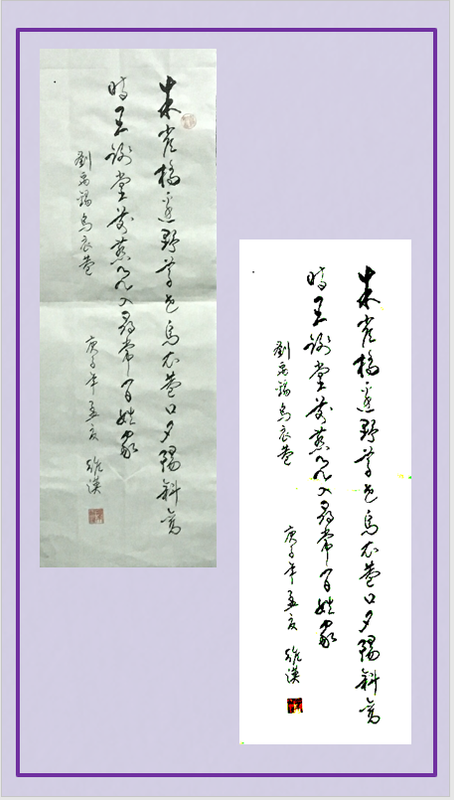 朱雀橋邊野草花烏衣巷口夕陽斜舊
時王謝堂前燕飛入尋常百姓家
劉禹錫烏衣巷
庚子年孟夏 漢
朱雀橋邊野草花烏衣巷口夕陽斜舊
時王謝堂前燕飛入尋常百姓家
劉禹錫烏衣巷
庚子年孟夏 漢